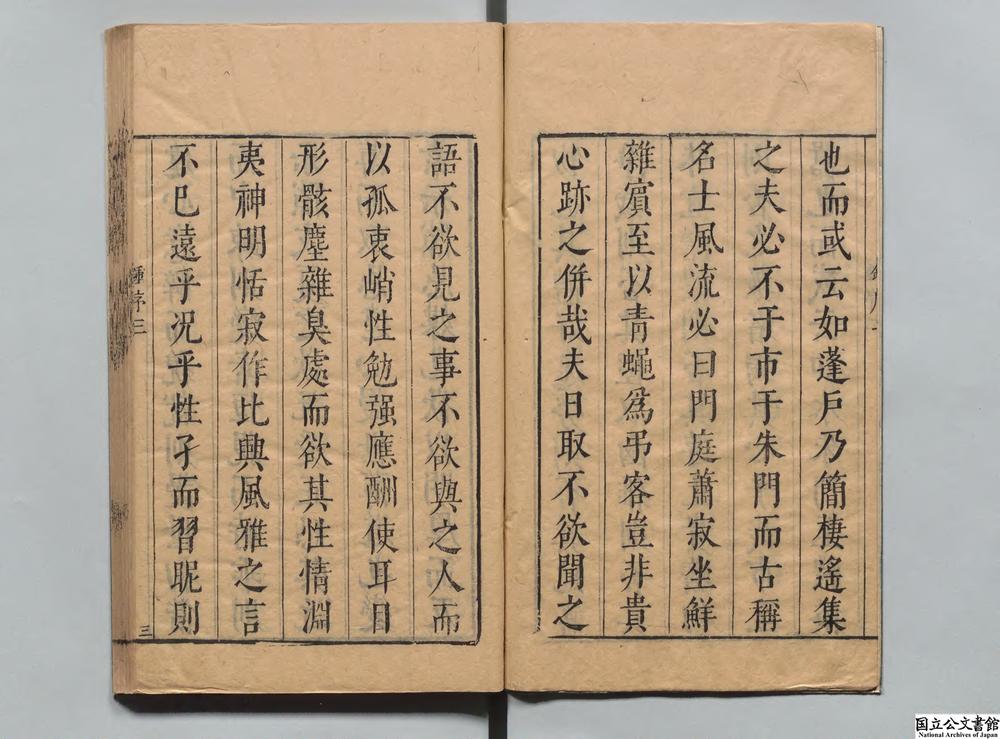 也而或云如蓬戶乃簡棲遙集
之夫必不于市于朱門而古稱
名士風流必曰門庭蕭寂坐鮮
雜賓至以青蠅爲弔客豈非貴
心跡之併哉夫日取不欲聞之
語不欲見之事不欲與之人而
以孤衷峭性勉强應酬使耳目
形骸塵雜臭處而欲其性情淵
夷神明恬寂作比興風雅之言
不已遠乎况乎性孑而習昵則
鍾序三
三
国立公文書館
National Archives of Japan